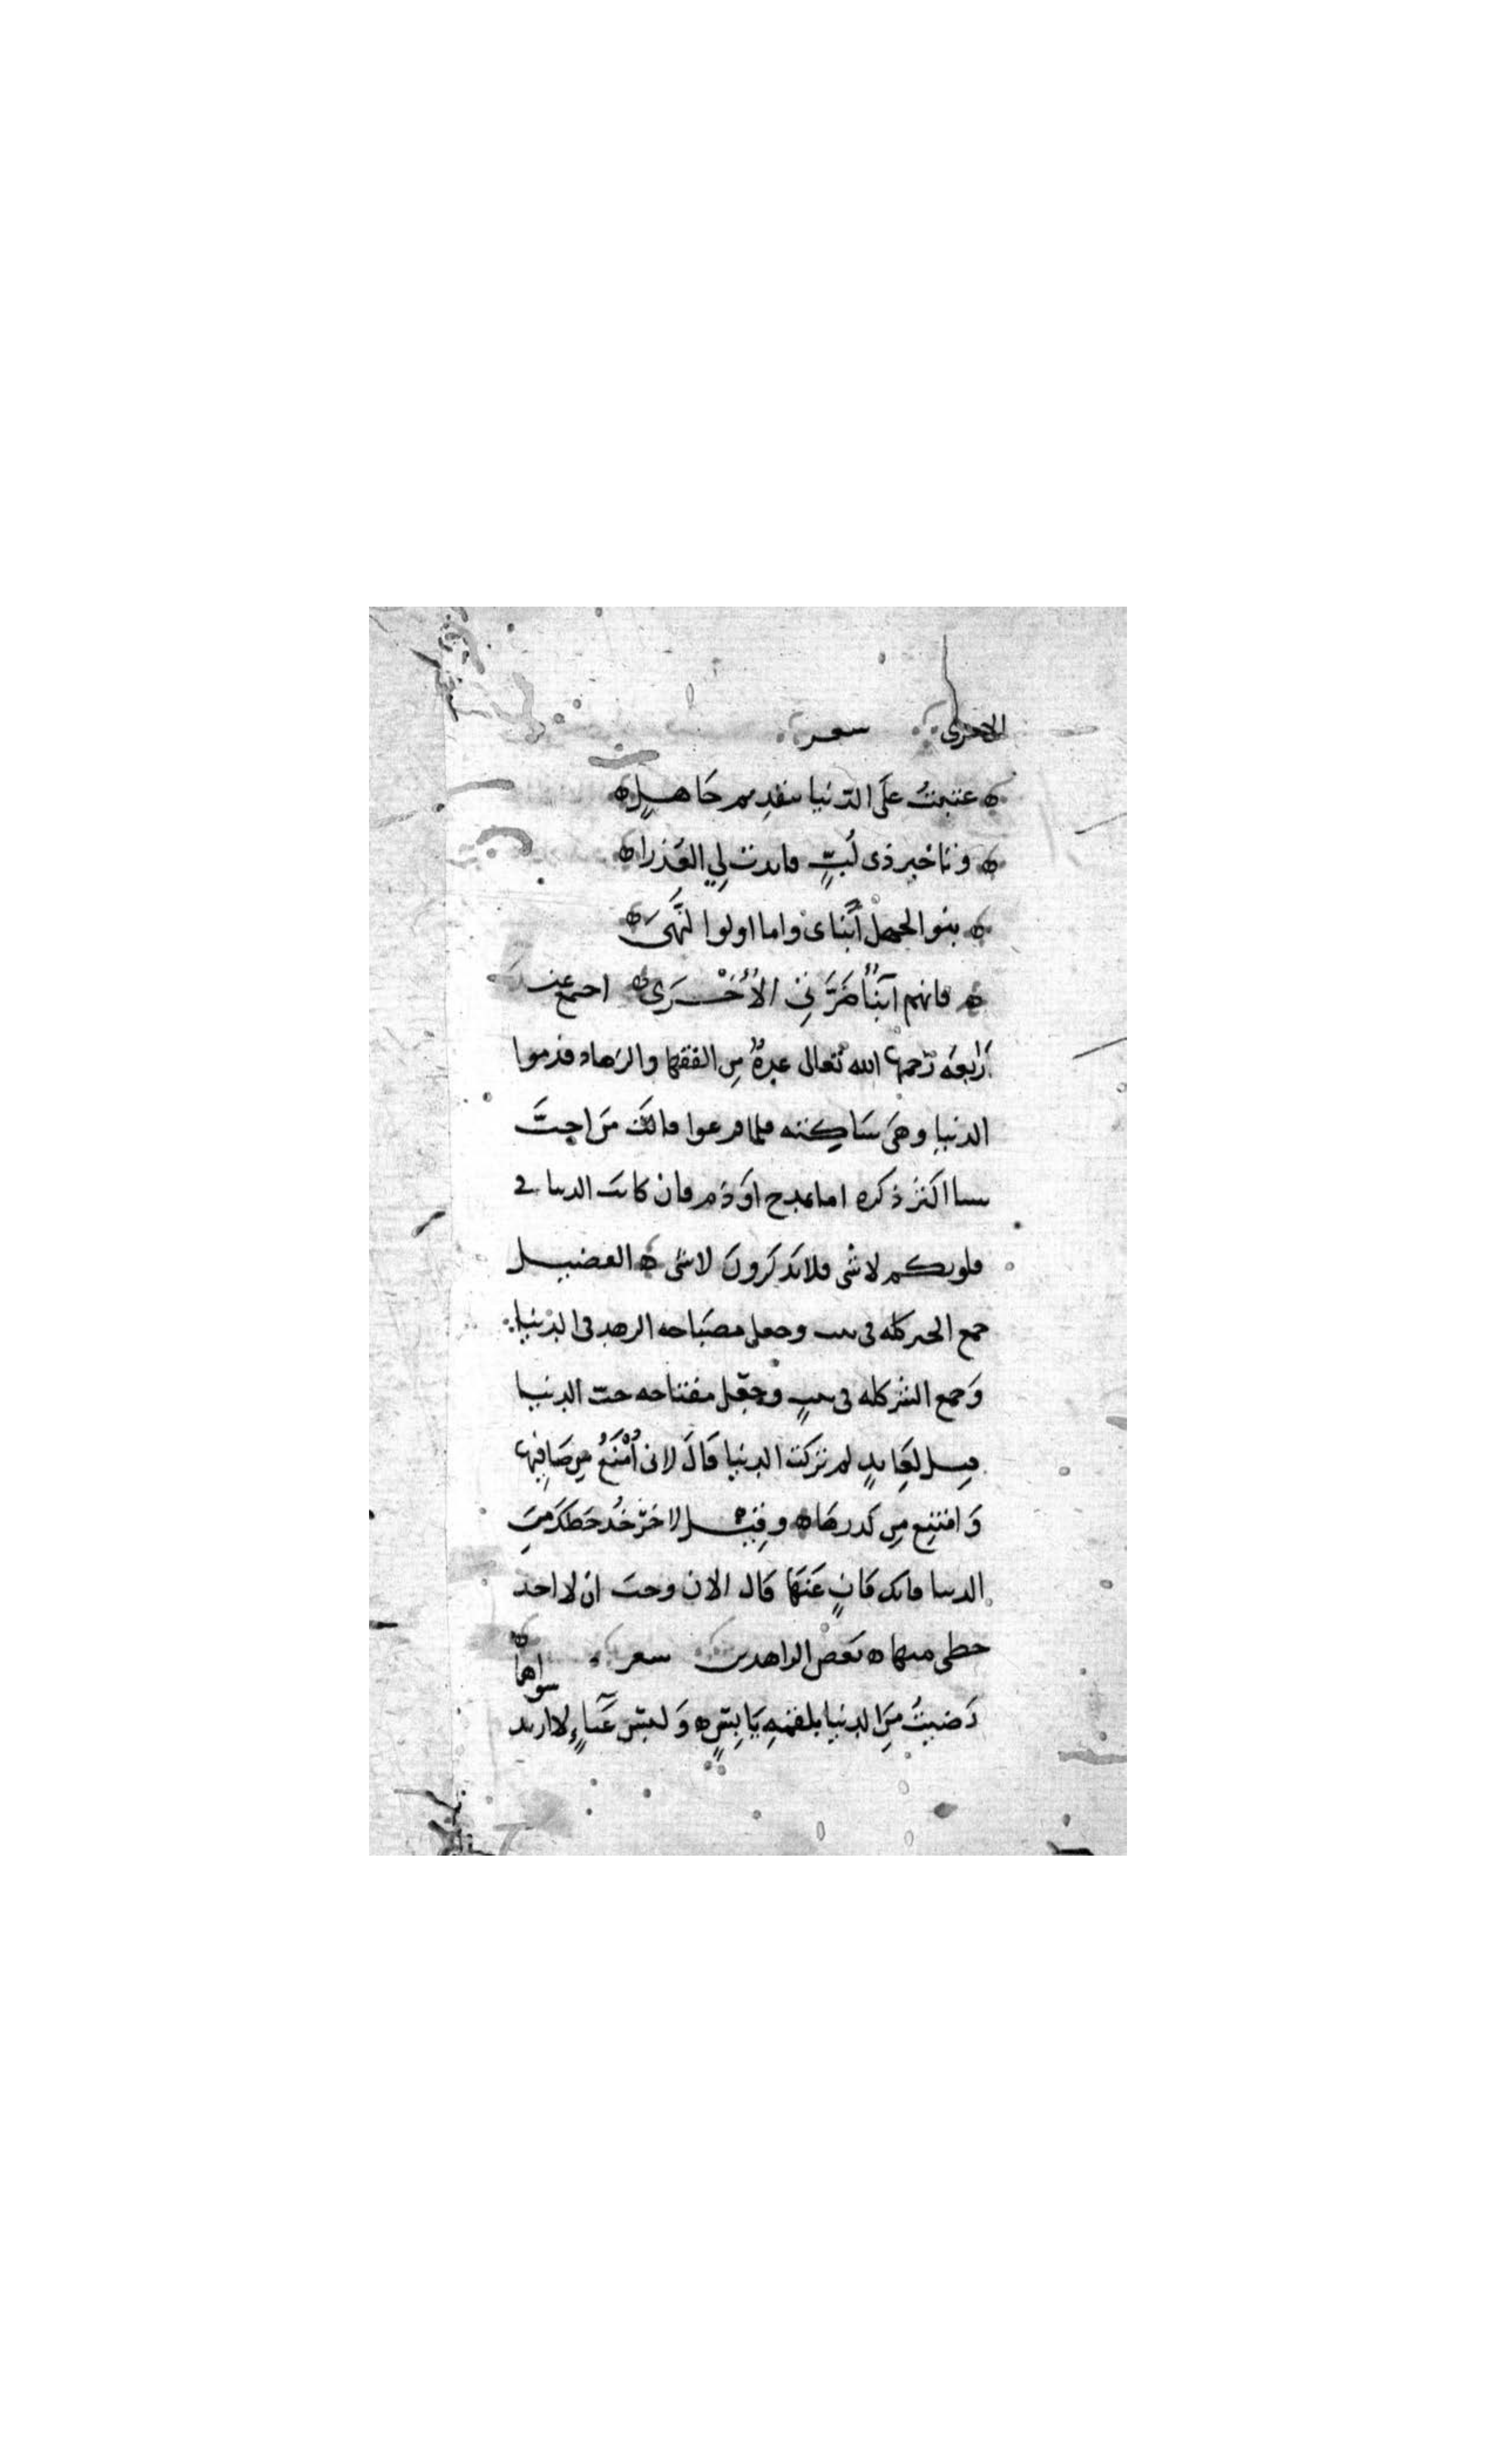 الاخرى شعر
عتبت على الدنيا بتقديم جاهل
وتاخير ذى لب فابدت لي العذرا
بنو الجهل أبناى واما اولوا النهى
فانهم أبناء ضرتي الأخرى اجتمع عند
رابعه رحمها الله تعالى عدة من الفقها والزهاد فذموا
الدنيا وهى ساكته فلما فرغوا قالت من احب
شيا اكثر ذكره اما بمدح او ذم فان كانت الدنيا في
قلوبكم لاشى فلا تذكرون لاشى الفضيل
جمع الخير كله فى بيت وجعل مصباحه الزهد فى الدنيا
وجمع الشر كله فى بيت وجعل مفتاحه حب الدنيا
قيل لعابد لم تركت الدنيا قال لانى أمنع من صافيها
وامتنع من كدرها وقيل لاخر خذ حظك من
الدنيا فانك فان عنها قال الان وجب ان لا اخذ
حظى منها بعض الزاهدين شعر
رضيت من الدنيا بلقمه يابس ولبس عباء لا اريد سواهما